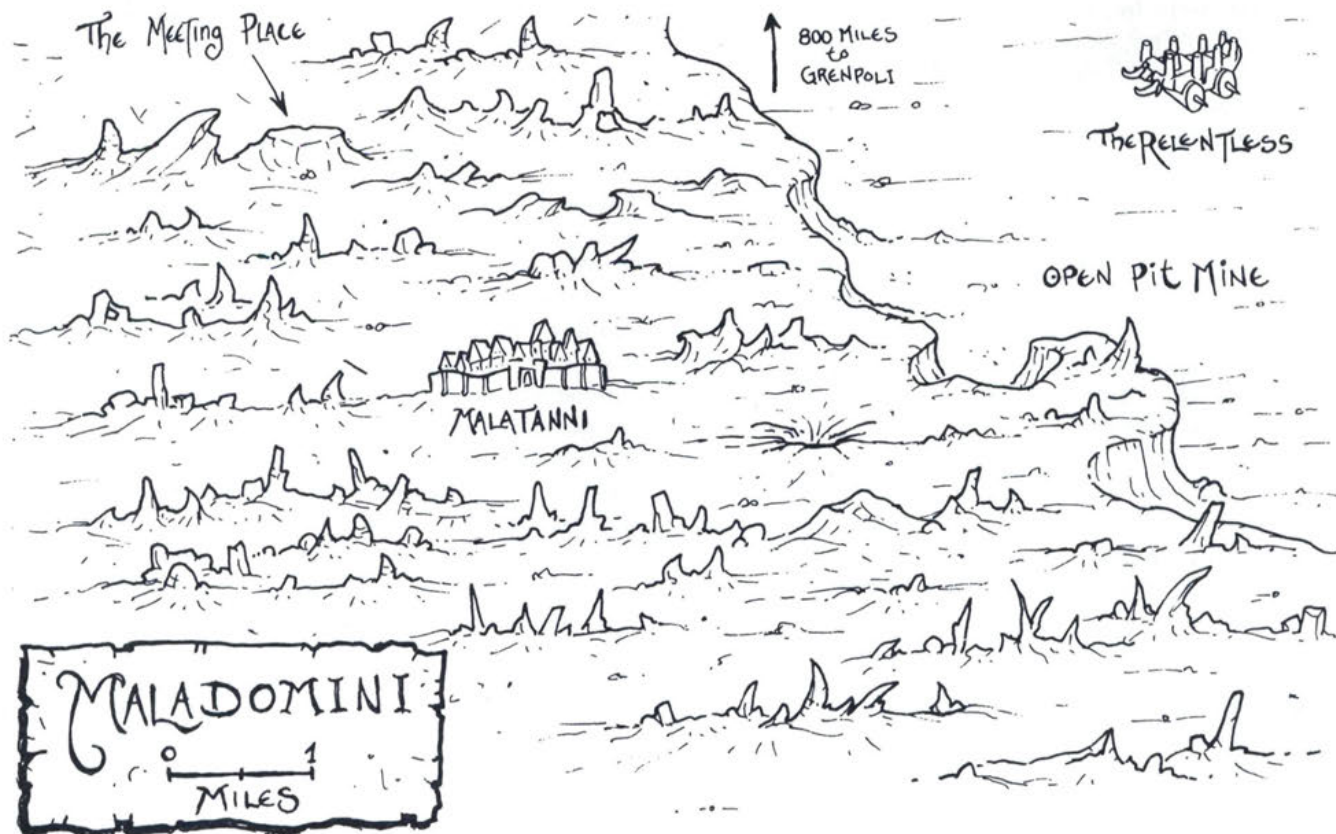 The Meeting Place
800 Miles
to
Grenpoli
The Relentless
Open Pit Mine
Malatanni
Maladomini
0 1
Miles